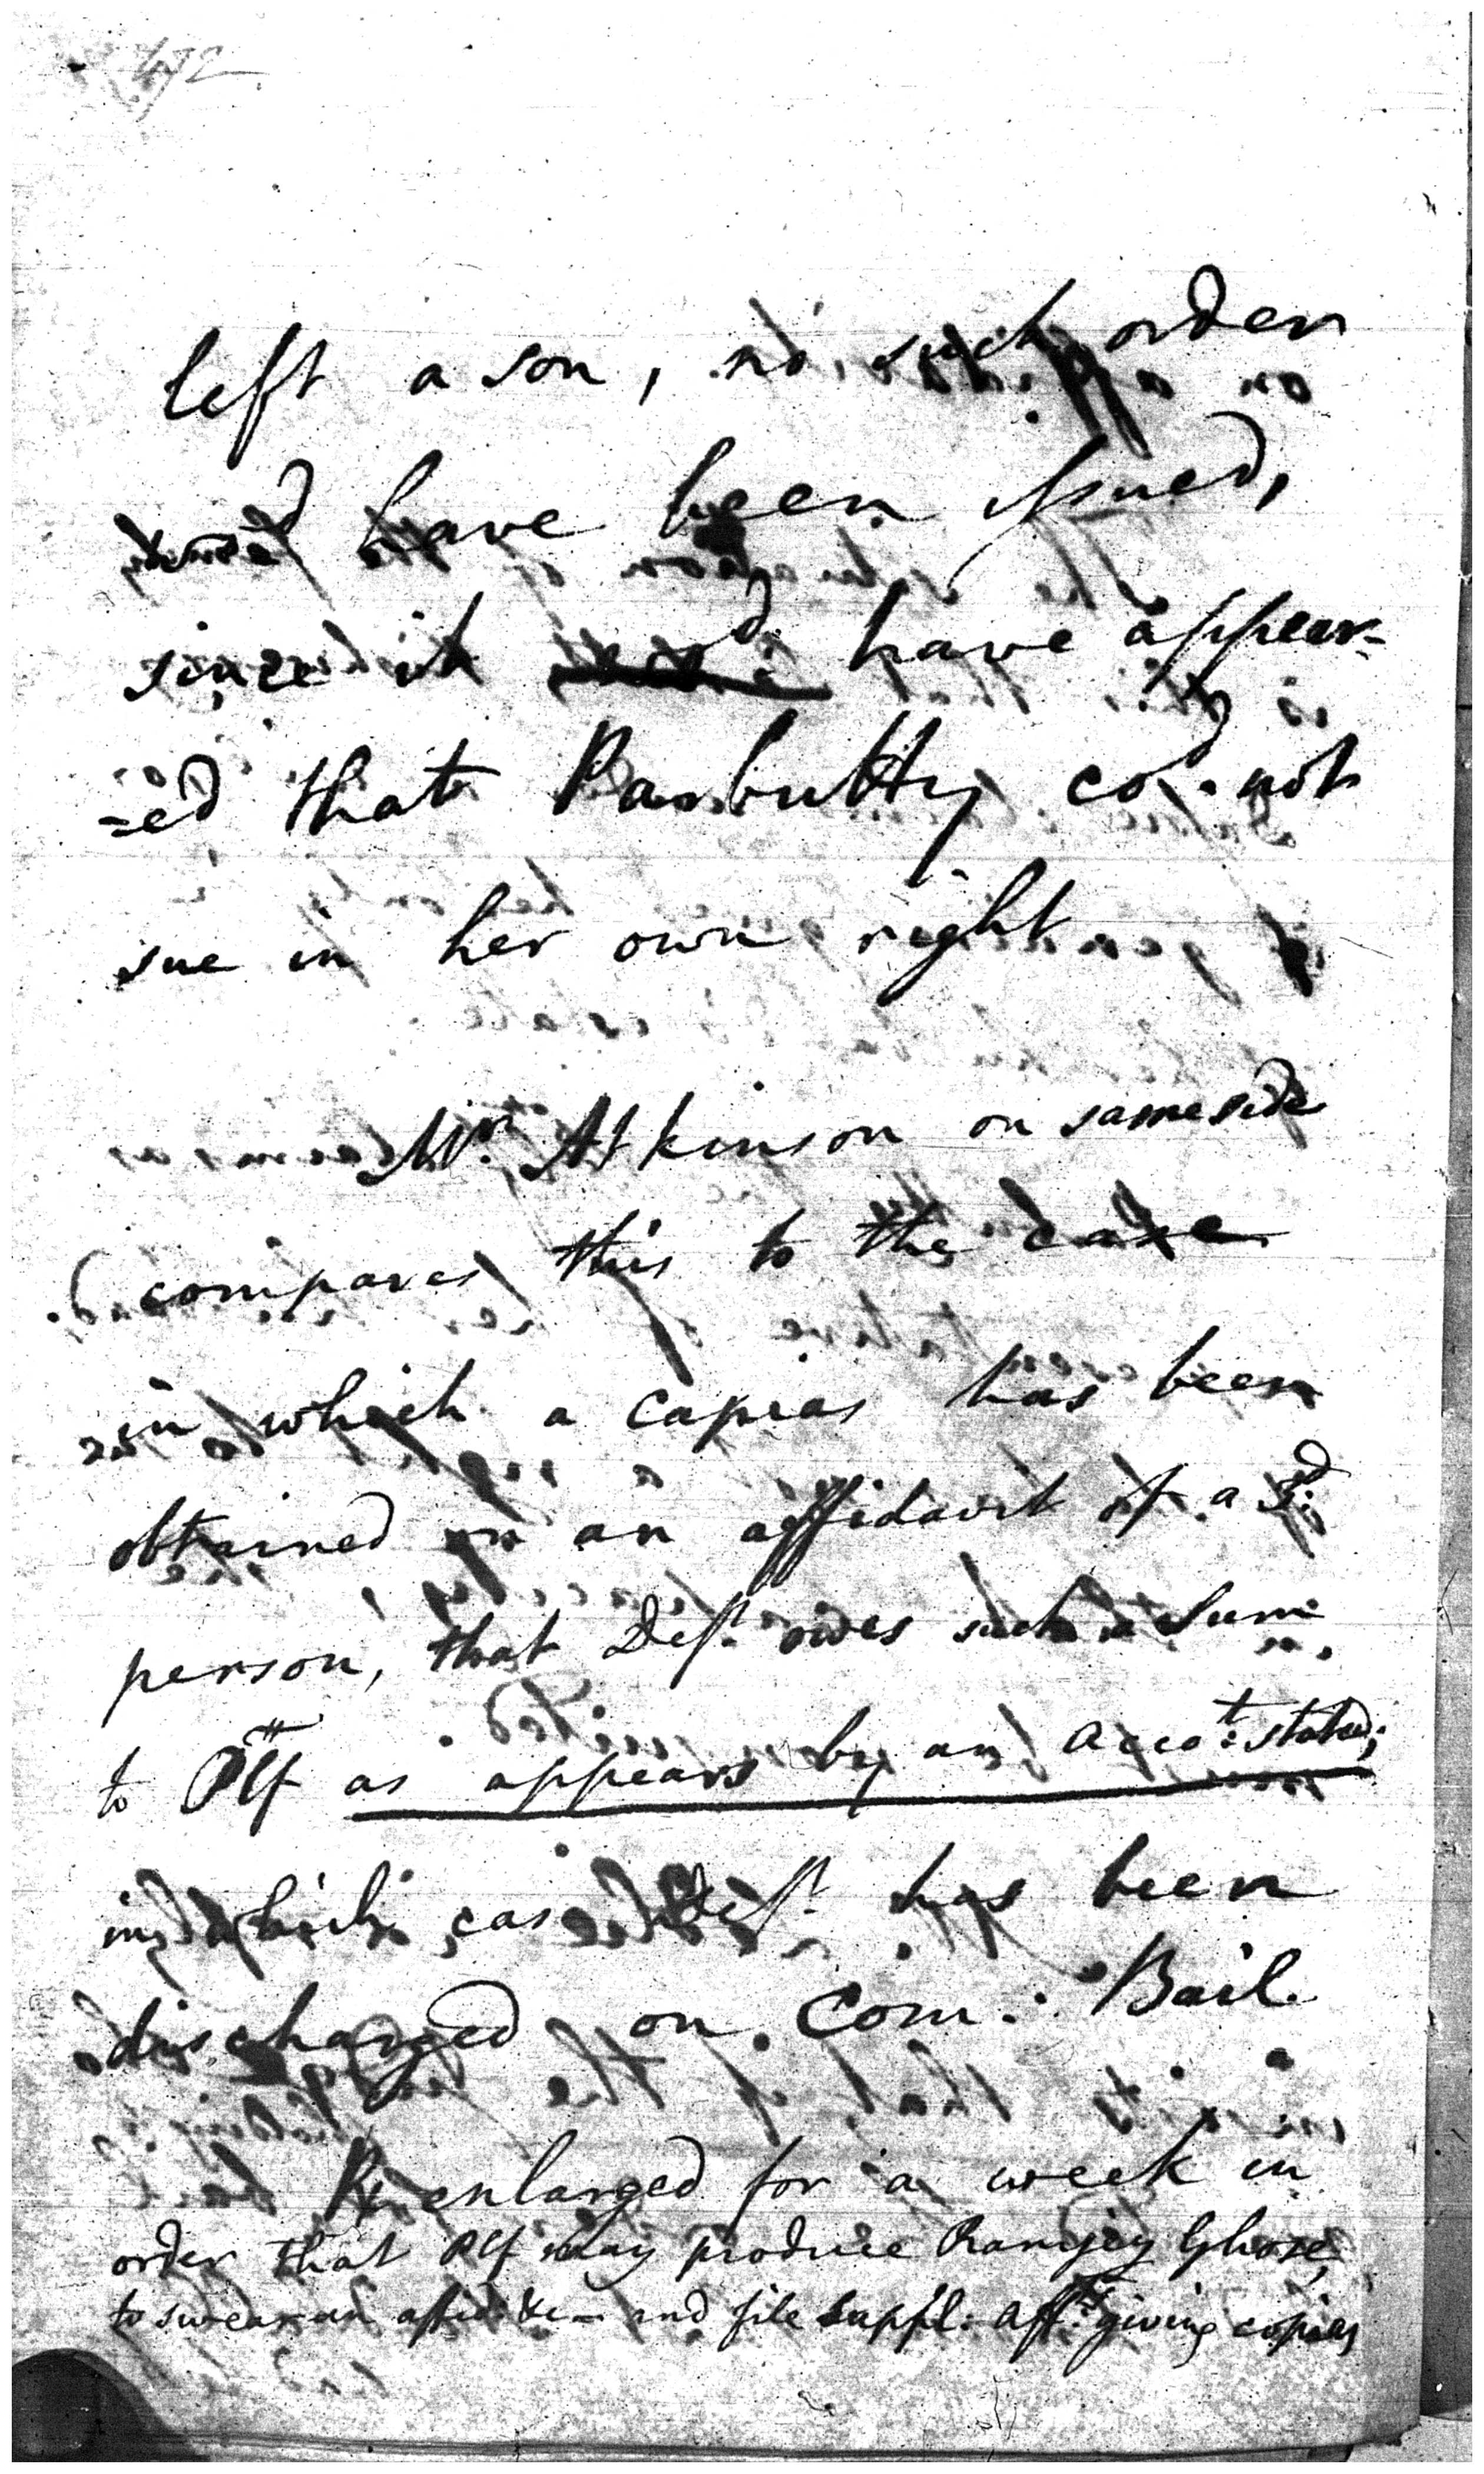 left a son, no such order
wod have been issued,
since it wd have appear=
=ed that Parbutty cod. not
sue in her own right
Mr. Atkinson on same side
compares this to the case
in which a capias has been
obtained on an affidavit of a 3d:
person, that Deft. owes such a sum
to Plff as appears by an acco:t stated;
in which case deft. has been
discharged on Com: Bail.
enlarged for a week in
order that Plf may produce Ramjoy Ghose,
to swear an affid: &c— and file suppl: afft: giving copies